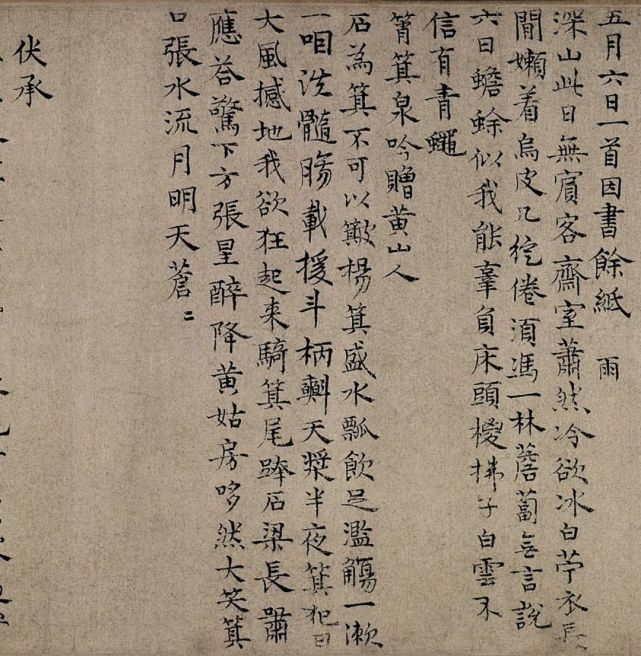 五月六日一首因書餘紙 雨
深山此日無賓客齋室蕭然冷欲冰白苧衣長
閒嬾着烏皮几穩倦須馮一林薝蔔無言說
六日蟾蜍似我能辜負床頭椶拂子白雲不
信有青蠅
筲箕泉吟贈黄山人
石為箕不可以簸揚箕盛水瓢飲足濫觴一漱
一咽洗髓腸載援斗柄㪺天漿半夜箕犯月
大風撼地我欲狂起来騎箕尾踔石梁長嘯
應荅驚下方張星醉降黄姑房哆然大笑箕
口張水流月明天蒼〻
伏承